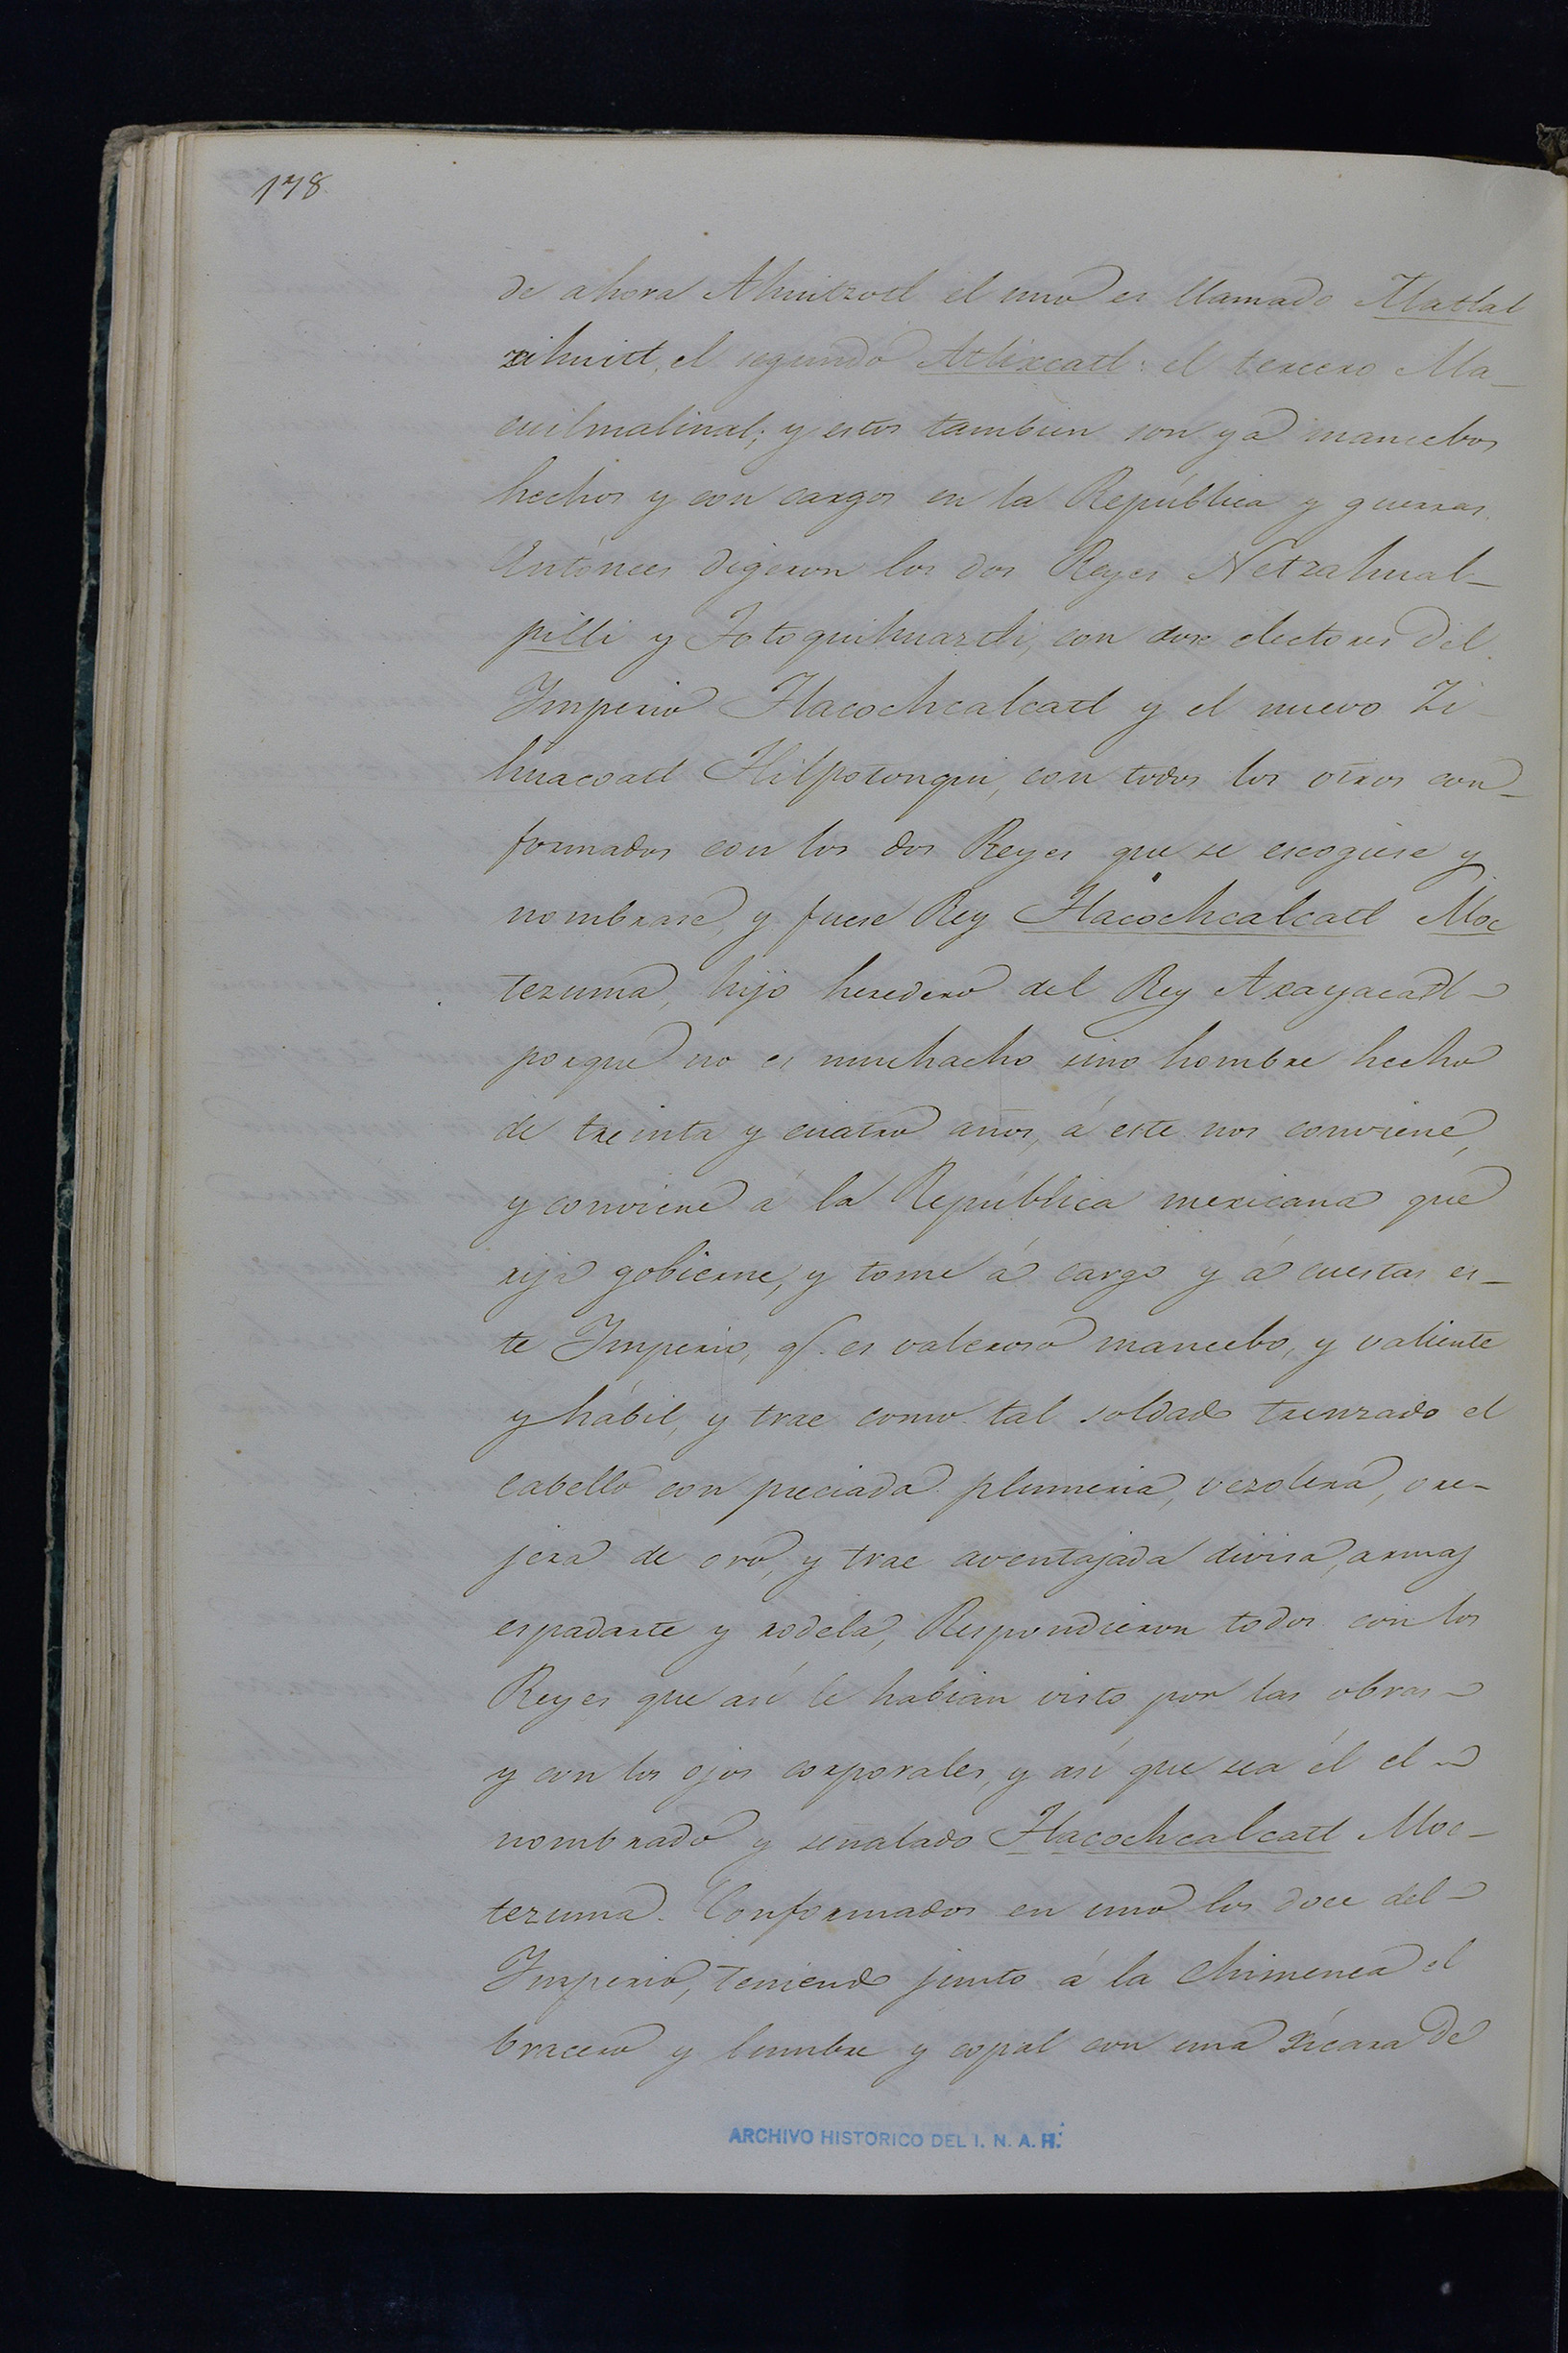 178
de ahora Ahuitzotl el uno es llamado Tlatlal
xihuitl, el segundo Atlixcatl: el tercero Ma-
cuilmalinal; y estos tambien son ya mancebos
hechos y con cargos en la República y guerras.
Entónces digeron los dos Reyes Netzahual-
pilli y Totoquihuaztli, con doze electores del
Imperio Tlacochcalcatl y el nuevo Zi-
huacoatl Tlilpotonqui, con todos los otros con-
formados con los dos Reyes que se escogiese y
nombrase, y fuese Rey Tlacochcalcatl Moc
tezuma, hijo heredero del Rey Axayacatl
porque no es muchacho sino hombre hecho
de treinta y cuatro años, á este nos conviene,
y conviene á la República mexicana que
rija gobierne, y tome á cargo y á cuestas es-
te Imperio, q. es valeroso mancebo, y valiente
y hábil, y trae como tal soldado trenzado el
cabello con preciada plumeria, vezolera, ore-
jera de oro, y trae aventajada divisa, armas
espadarte y rodela, Respondieron todos con los
Reyes que así le habian visto por las obras
y con los ojos corporales, y así que sea él el
nombrado y señalado Tlacochcalcatl Moc-
tezuma. Conformados en uno los doce del
Imperio, teniendo junto á la chimenea el
bracero y lumbre y copal con una xícara de
ARCHIVO HISTORICO DEL I. N. A. H.